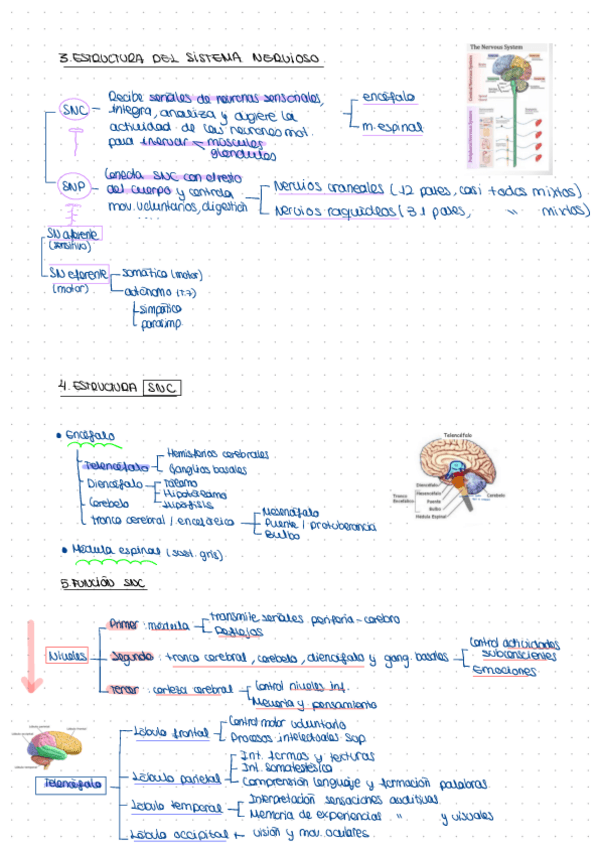 3. ESTRUCTURA DEL SISTEMA NERVIOSO
The Nervous System
SNC
Recibe señales de neuronas sensoriales,
integra, analiza y dirige la
actividad de las neuronas mot.
para inervar músculos
glándulas
encéfalo
m. espinal
SNP
Conecta SNC con el resto
del cuerpo y controla
mov. voluntarios, digestión
....
Nervios craneales (12 pares, casi todos mixtos)
Nervios raquídeos (31 pares, " mixtos)
SN aferente
(sensitivo)
SN eferente
(motor)
somático (motor)
autónomo (T.7)
simpático
parasimp.
4. ESTRUCTURA SNC
Encéfalo
Telencéfalo
Hemisferios cerebrales
Ganglios basales
Diencéfalo
Tálamo
Hipotálamo
Hipófisis
Cerebelo
Tronco cerebral / encefálico
Mesencéfalo
Puente / protuberancia
Bulbo
Médula espinal (sust. gris)
Telencéfalo
Diencéfalo
Mesencéfalo
Tronco
Encefálico
Puente
Bulbo
Médula Espinal
Cerebelo
5. FUNCIÓN SNC
Niveles
Primer: médula
transmite señales periferia-cerebro
Reflejos
Segundo: tronco cerebral, cerebelo, diencéfalo y gang. basales
Control actividades
subconscientes
Emociones
Tercer: corteza cerebral
Control niveles inf.
Memoria y pensamiento
Telencéfalo
Lóbulo frontal
Control motor voluntario
Procesos intelectuales sup.
Lóbulo parietal
Int. formas y texturas
Int. somatestésica
Comprensión lenguaje y formación palabras
Lóbulo temporal
Interpretación sensaciones auditivas
Memoria de experiencias " y visuales
Lóbulo occipital
visión y mov. oculares